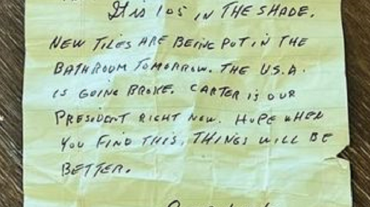 It is 105 in THE SHADE.
NEW TILES ARE BEING PUT IN THE
BATHROOM TOMORROW. THE U.S.A.
IS GOING BROKE. CARTER IS OUR
PRESIDENT RIGHT NOW. HOPE WHEN
YOU FIND THIS, THINGS WILL BE
BETTER.